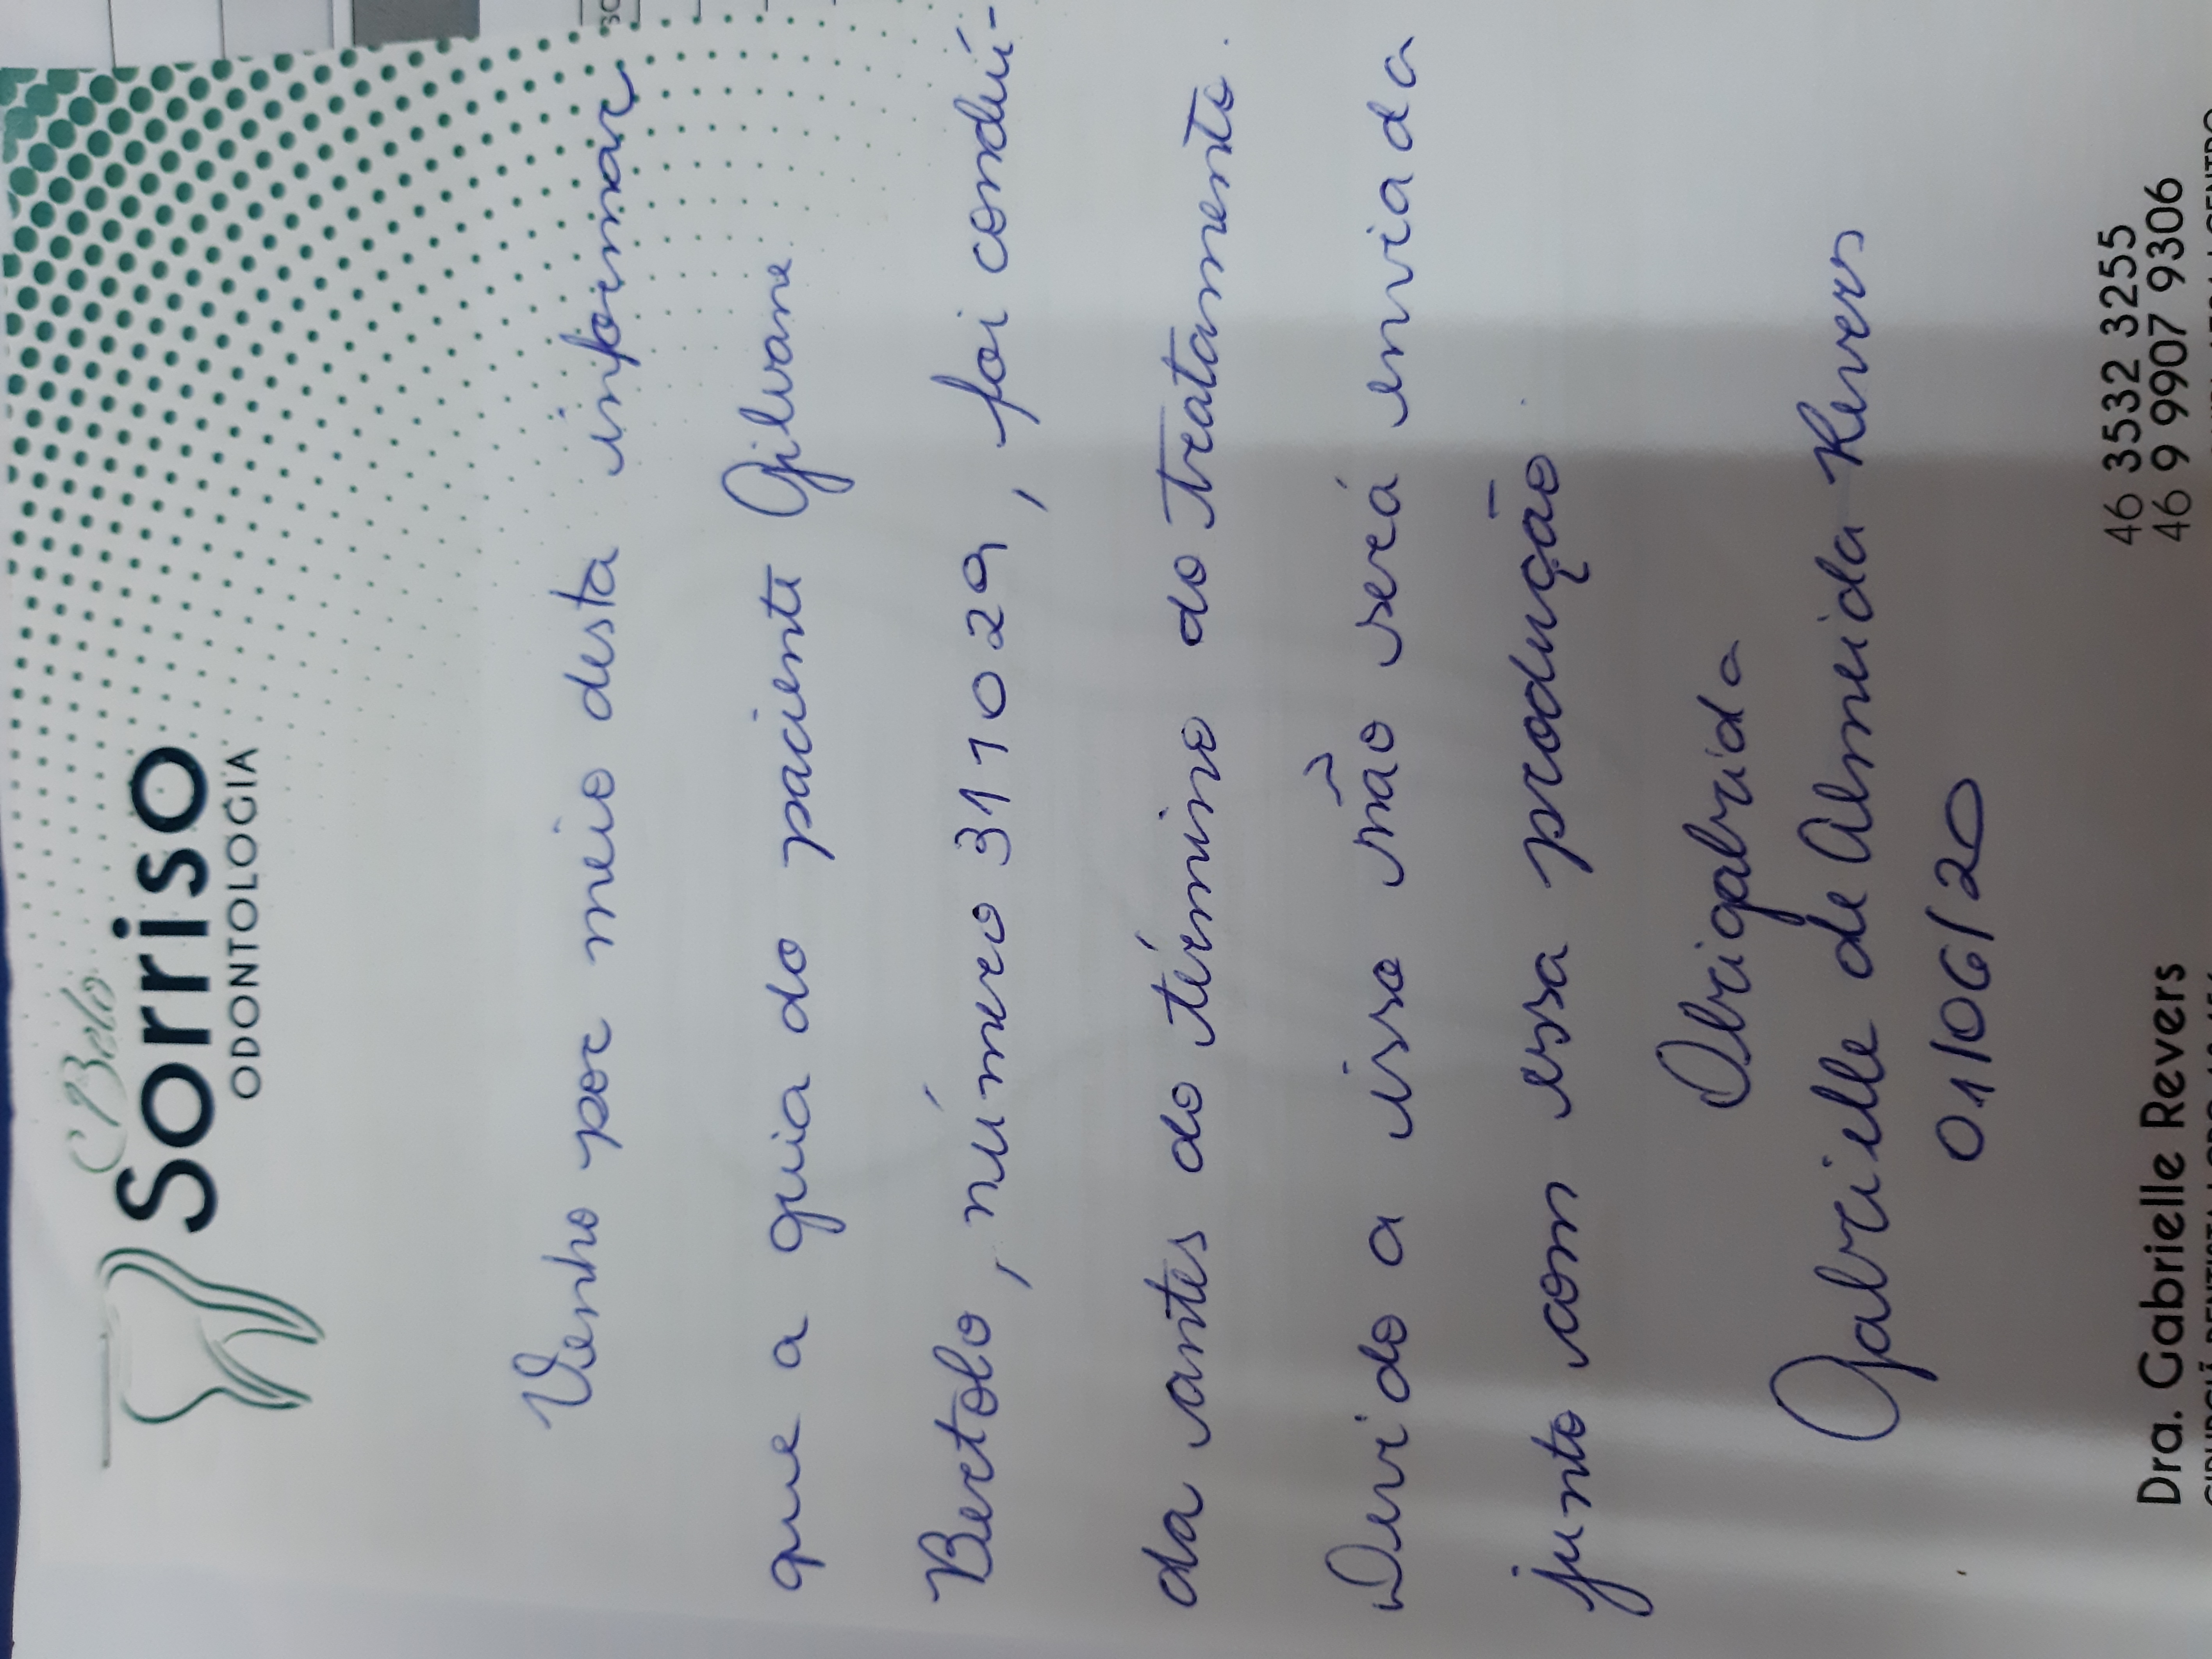 Belo
Sorriso
ODONTOLOGIA
Venho por meio desta informar
que a guia do paciente Gilvane
Bertolo, número 311029, foi conduí-
da antes do término do tratamento.
Devido a isso não será enviada
junto com essa produção
Obrigabrida
Gabrielle de Almeida Revers
01/06/20
Dra. Gabrielle Revers
46 3532 3255
46 9 9907 9306